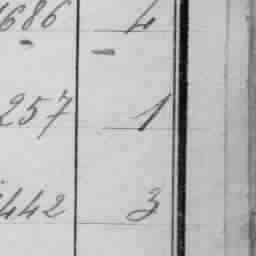 1686 4
257 1
442 3